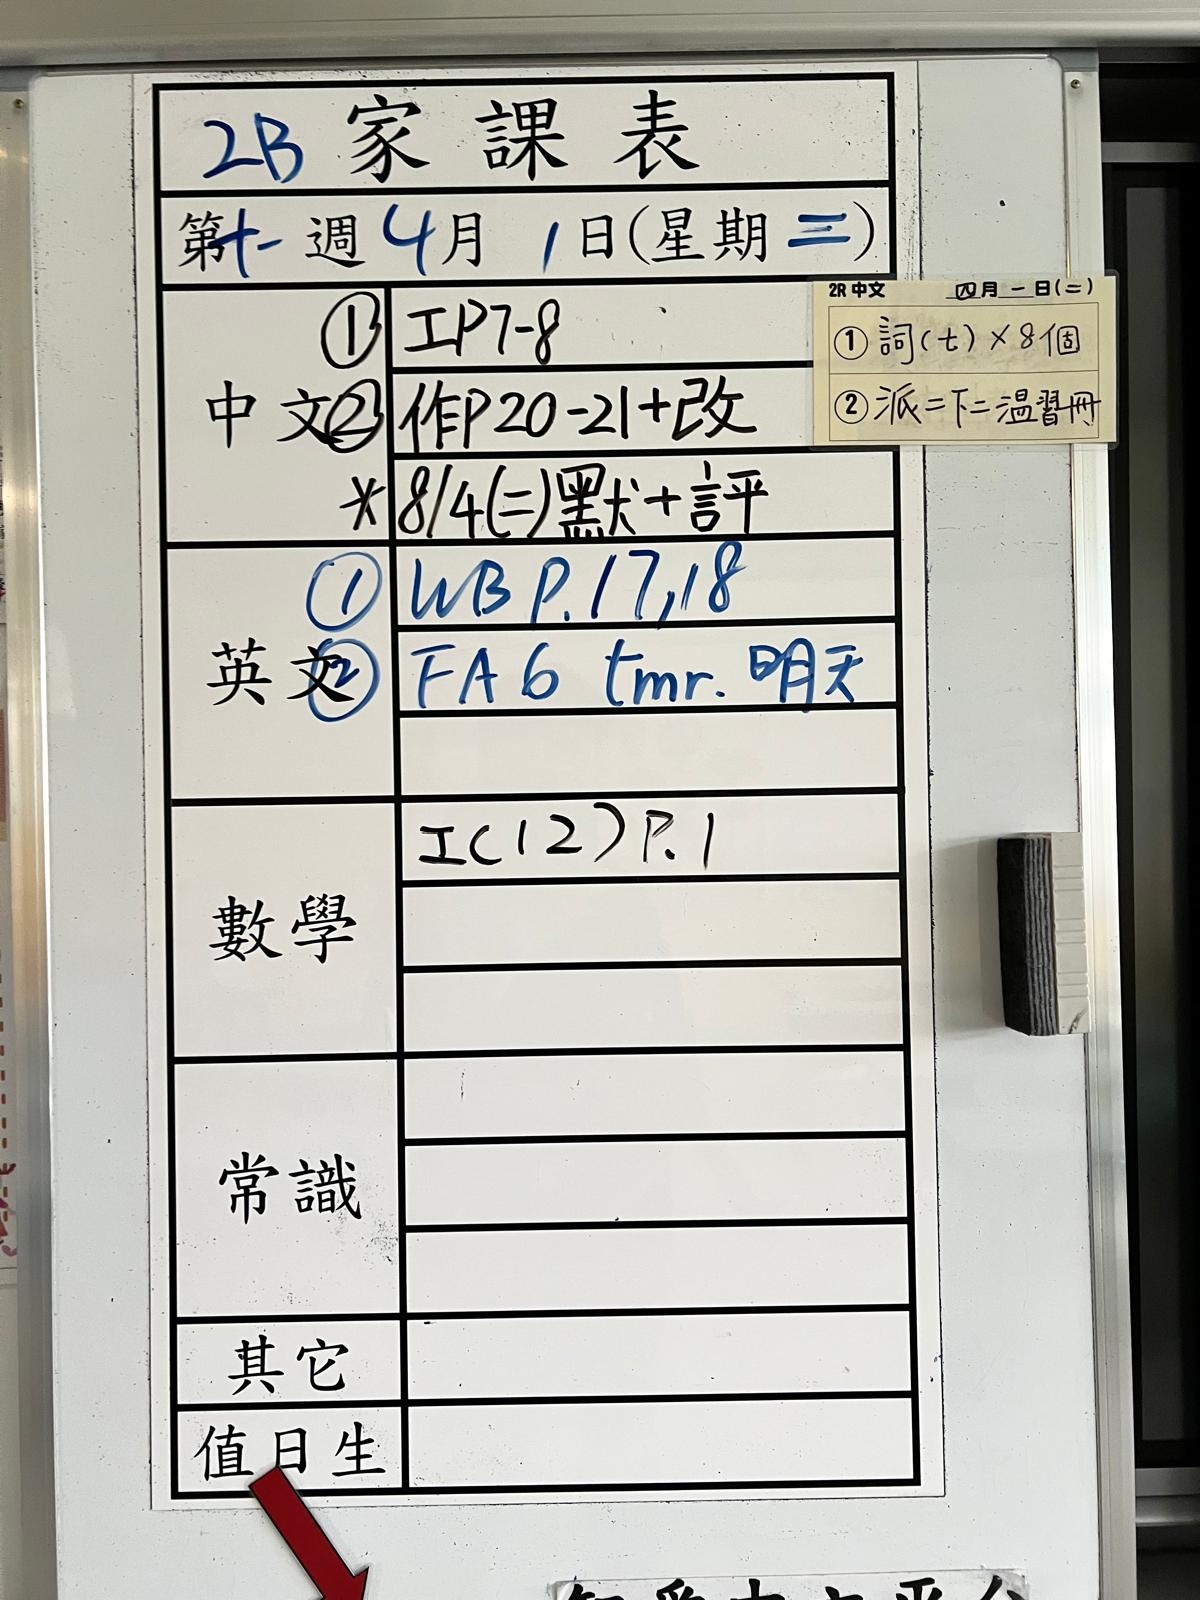 2B 家課表
第十一週 4月 1日(星期二)
中文
① 工P7-8
② 作P20-21+改
* 8/4(二)默+評
2R 中文 四月一日(二)
① 詞(七)×8個
② 派=下=温習冊
英文
① WB P.17,18
② FA 6 tmr. 明天
數學
工(12)P.1
常識
其它
值日生